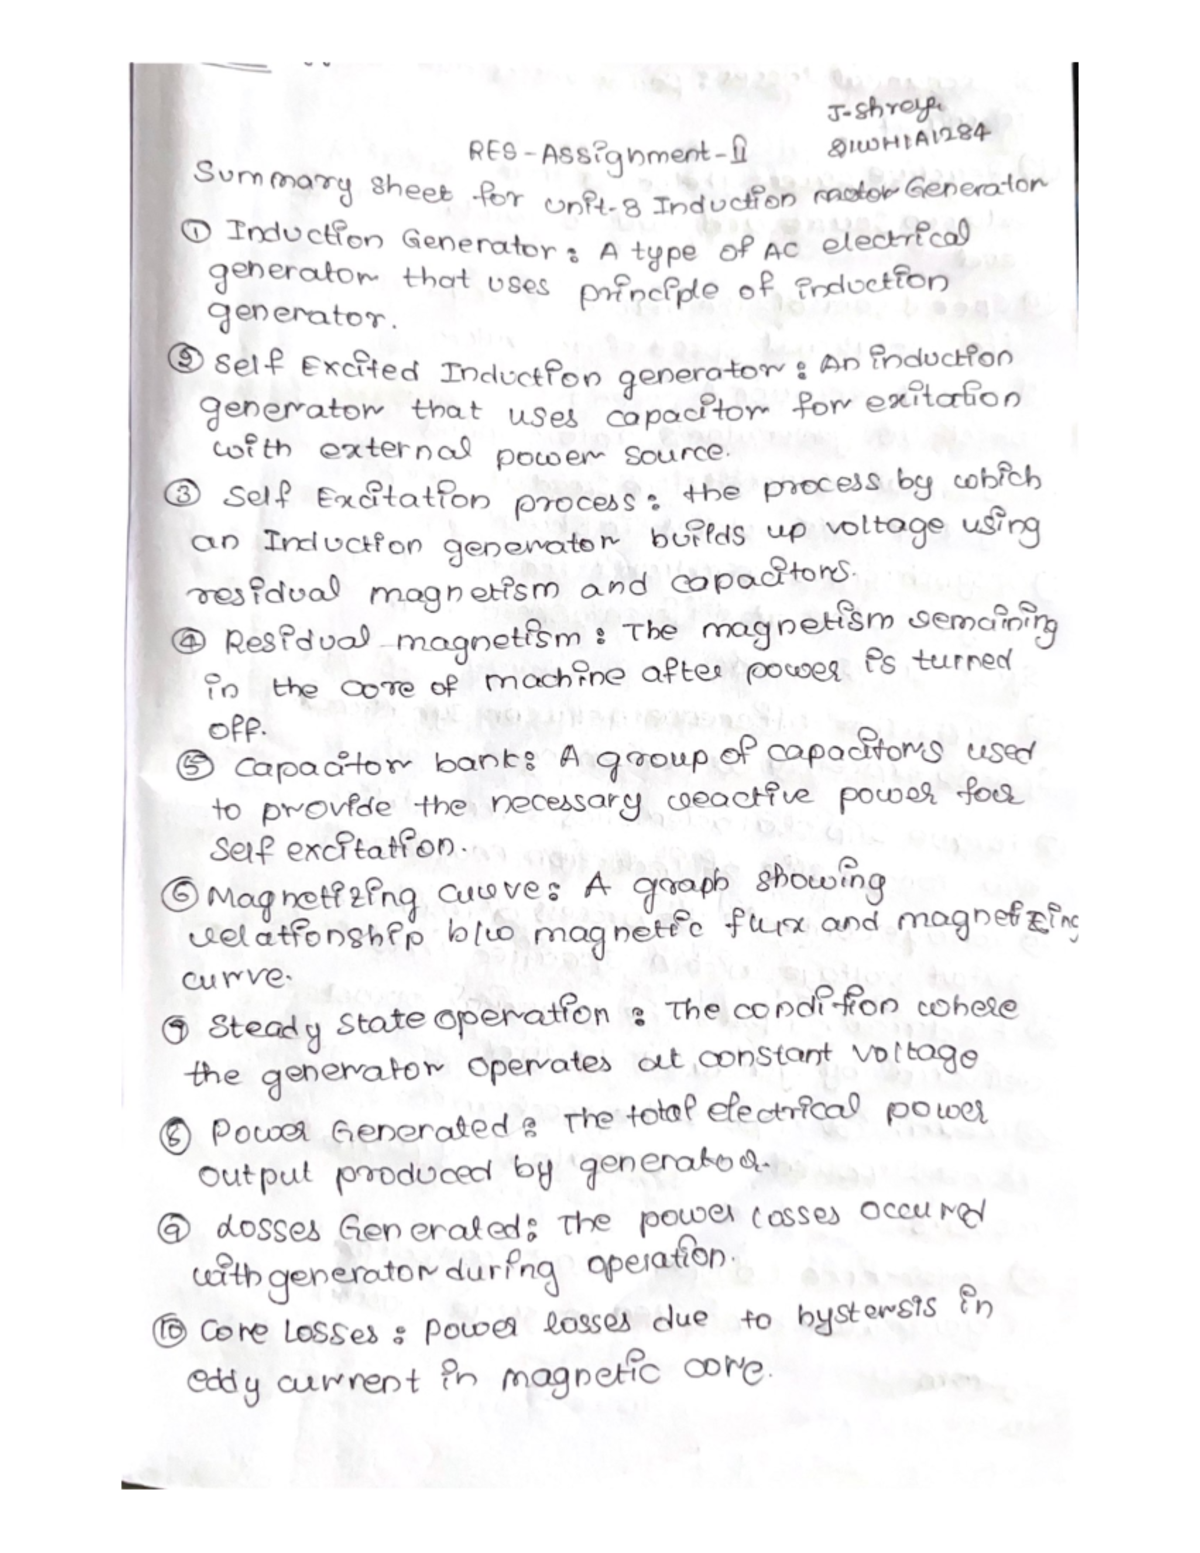 J-Shreya
21WH1A1284
RES - Assignment - II
Summary sheet for unit-8 Induction motor Generator
① Induction Generator: A type of AC electrical
generator that uses principle of induction
generator.
② Self Excited Induction generator: An induction
generator that uses capacitor for exitation
with external power source.
③ Self Excitation process: the process by which
an Induction generator builds up voltage using
residual magnetism and capacitors.
④ Residual magnetism: The magnetism remaining
in the core of machine after power is turned
off.
⑤ Capacitor bank: A group of capacitors used
to provide the necessary reactive power for
Self excitation.
⑥ Magnetizing curve: A graph showing
relationship b/w magnetic flux and magnetizing
curve.
⑦ Steady State operation: The condition where
the generator operates at constant voltage
⑧ Power Generated: The total electrical power
output produced by generator.
⑨ Losses Generated: The power losses occured
with generator during operation.
⑩ Core Losses: power losses due to hystersis in
eddy current in magnetic core.